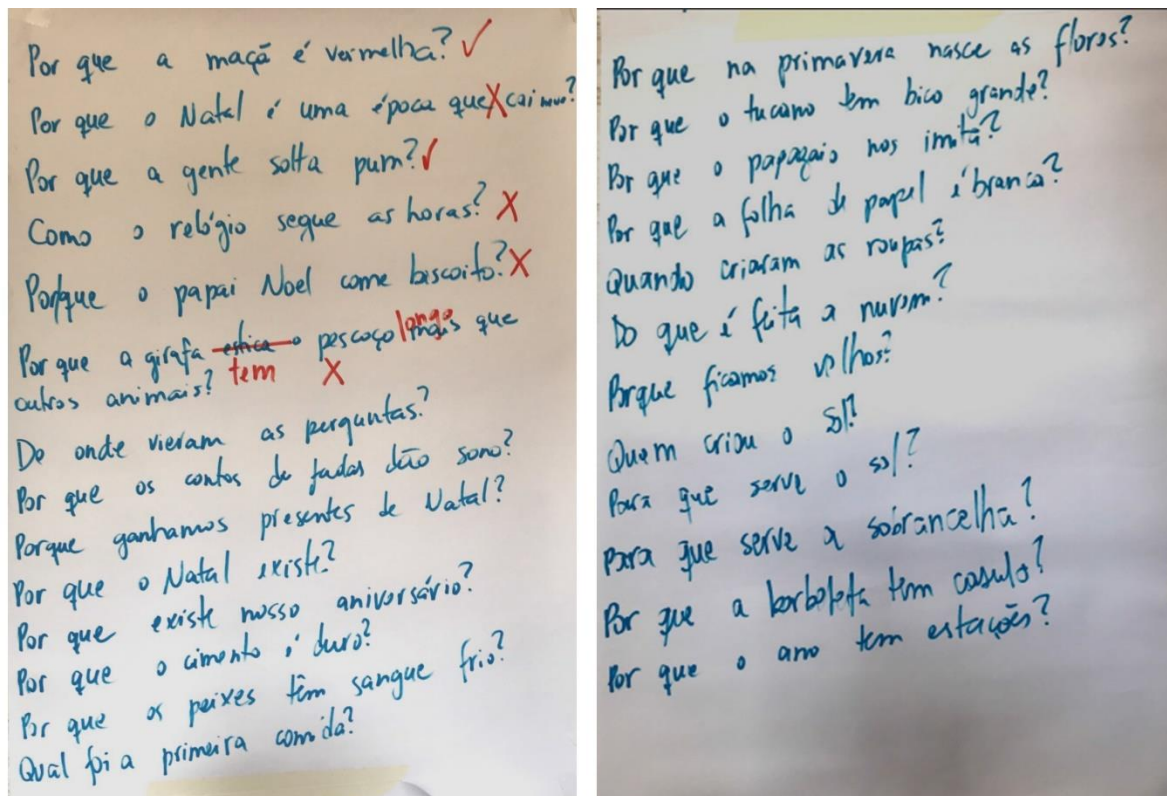 Por que a maçã é vermelha? ✓
Por que o Natal é uma época que X cai neve?
Por que a gente solta pum? ✓
Como o relógio segue as horas? X
Porque o papai Noel come biscoito? X
Por que a girafa estica o pescoço longo mais que
tem X
outros animais?
De onde vieram as perguntas?
Por que os contos de fadas dão sono?
Porque ganhamos presentes de Natal?
Por que o Natal existe?
Por que existe nosso aniversário?
Por que o cimento é duro?
Por que os peixes têm sangue frio?
Qual foi a primeira comida?
Por que na primavera nasce as flores?
Por que o tucano tem bico grande?
Por que o papagaio nos imita?
Por que a folha de papel é branca?
Quando criaram as roupas?
Do que é feita a nuvem?
Porque ficamos velhos?
Quem criou o sol?
Para que serve o sol?
Para que serve a sobrancelha?
Por que a borboleta tem casulo?
Por que o ano tem estações?